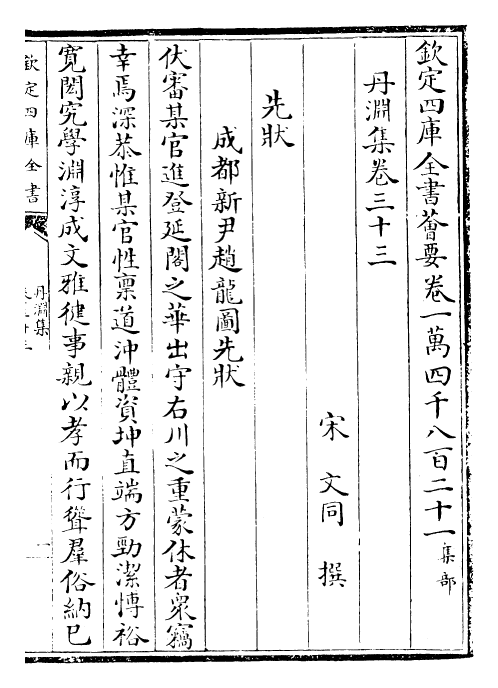 欽定四庫全書薈要卷一萬四千八百二十一集部
丹淵集卷三十三
宋文同撰
先狀
成都新尹趙龍圖先狀
伏審某官進登延閣之華出守右川之重蒙休者衆竊
幸焉深恭惟某官性稟道沖體資坤直端方勁潔慱裕
寛閎究學淵淳成文雅健事親以孝而行聳羣俗納巳
欽定四庫全書
丹淵集
卷三十三
一